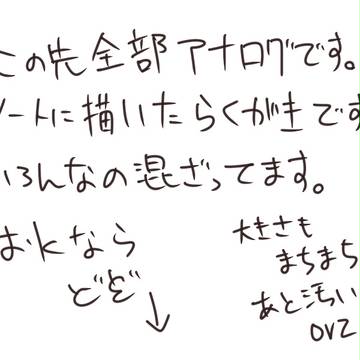 この先全部アナログです。
ノートに描いたらくがきです
いろんなの混ざってます。
おkなら
どぞ↓
大きさも
まちまち
あと汚い
orz